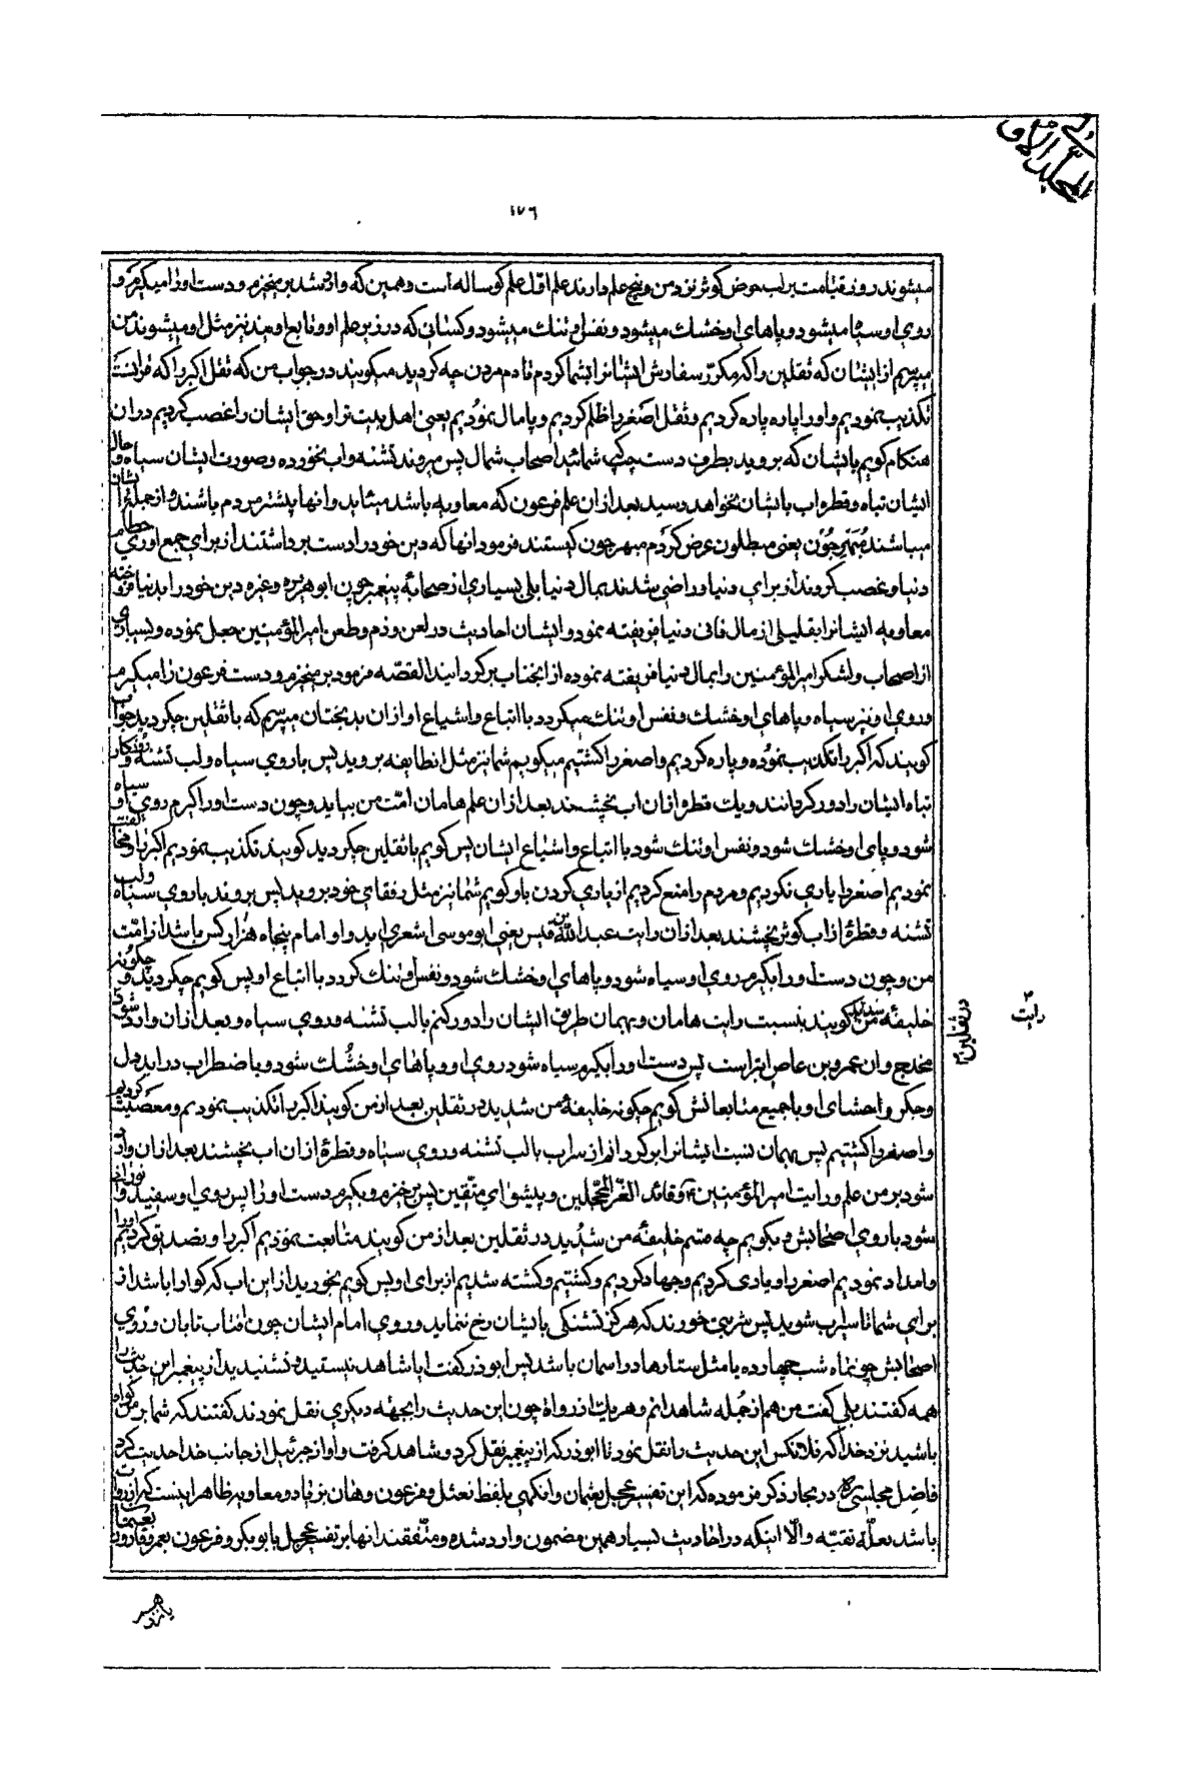 المجلد الاول
١٧٦
میشوند روز قیامت بر اب حوض کوثر نزد من و پنج علم دارند علم اول علم کوساله است و همین که وارد شد بر میخیزم و دست او را میکیرم و
روی او سیاه میشود و پاهای او خشك میشود و نفس او تنك میشود و کسانی که در زیر علم او و تابع او یند نیز مثل او میشوند من
میپرسم از ایشان که ثقلین را که مکرر سفارش ایشانرا بشما کردم تا دم مردن چه کردید میکویند در جواب من که ثقل اکبر را که قرانست
تکذیب نمودیم و او را پاره پاره کردیم و ثقل اصغر را ظلم کردیم و پامال نمودیم یعنی اهل بیت تو را و حق ایشان را غصب کردیم در ان
هنکام کویم بایشان که بروید بطرف دست چپ شمائید اصحاب شمال پس میروند تشنه و اب نخورده و صورت ایشان سیاه و حال
ایشان تباه و قطره اب بایشان نخواهد رسید بعد از ان علم فرعون که معاویه باشد میاید و انها بیشتر مردم باشند و از جمله ایشان
میباشند مبهرجون یعنی مبطلون عرض کردم مبهرجون کیستند فرمود انها که دین خود را دست برداشتند از برای جمع اوری حطام
دنیا و غصب کردند از برای دنیا و راضی شدند بمال دنیا بلی بسیاری از صحابه پیغمبر چون ابو هریره و غیره دین خود را بدنیا فروخته
معاویه ایشانرا بقلیلی از مال فانی دنیا فریفته نمود و ایشان احادیث در لعن و ذم و طعن امیرالمؤمنین جعل نموده و بسیاری
از اصحاب و لشکر امیرالمؤمنین را بمال دنیا فریفته نموده از انجناب بر کردانید القصه فرمود بر میخیزم و دست فرعون را میکیرم
و روی او نیز سیاه و پاهای او خشك و نفس او تنك میکردد با اتباع و اشیاع او از ان بدبختان میپرسم که با ثقلین چکردید جواب
کویند که اکبر را تکذیب نموده و پاره کردیم و اصغر را کشتیم میکویم شما نیز مثل انطایفه بروید پس با روی سیاه و لب تشنه و روزکار
تباه ایشان را دور کردانند و یك قطره از ان اب نچشند بعد از ان علم هامان امت من بیاید و چون دست او را کیرم روی او سیاه
شود و پای او خشك شود و نفس او تنك شود با اتباع و اشیاع ایشان پس کویم با ثقلین چکردید کویند تکذیب نمودیم اکبر را و مخالفت
نمودیم اصغر را یاری نکردیم و مردم را منع کردیم از یاری کردن باو کویم شما نیز مثل رفقای خود بروید پس بروند با روی سیاه و لب
تشنه و قطره از اب کوثر نچشند بعد از ان رایت عبد الله بن قیس یعنی ابو موسی اشعری اید و او امام پنجاه هزار کس باشد از امت
من و چون دست او را بکیرم روی او سیاه شود و پاهای او خشك شود و نفس او تنك کردد با اتباع او پس کویم چکردید و چکونه
خلیفه من شدید کویند بنسبت رایت هامان و بهمان طریق ایشان را دور کنم با لب تشنه و روی سیاه و بعد از ان وارد شود
در ثقلین
رایت
مخدج و ان عمرو بن عاص ابتر است پس دست او را بکیرم سیاه شود روی او و پاهای او خشك شود و باضطراب در اید دل
و جکر و احشای او با جمیع متابعانش کویم چکونه خلیفه من شدید در ثقلین بعد از من کویند اکبر را تکذیب نمودیم و معصیت کردیم
و اصغر را کشتیم پس بهمان نسبت ایشانرا بر کردانم از سراب با لب تشنه و روی سیاه و قطره از ان اب نچشند بعد از ان وارد
شود بر من علم و رایت امیرالمؤمنین و قائد الغر المحجلین و پیشوای متقین پس بر خیزم و بکیرم دست او را پس روی او سفید و نورانی
شود با روی اصحابش و بکویم چه قسم خلیفه من شدید در ثقلین بعد از من کویند متابعت نمودیم اکبر را و تصدیق کردیم او را
و امداد نمودیم اصغر را و یاری کردیم و جهاد کردیم و کشتیم و کشته شدیم از برای او پس کویم بخورید از این اب که کوارا باشد از
برای شما تا سیراب شوید پس شربتی خورند که هرکز تشنکی بایشان رخ ننماید و روی امام ایشان چون افتاب تابان و روی
اصحابش چون ماه شب چهارده یا مثل ستارها در اسمان باشد پس ابوذر کفت ایا شاهد نیستید و نشنیدید از پیغمبر این حدیث را
همه کفتند بلی کفت من هم از جمله شاهدانم و هر یك از رواة چون این حدیث را بجهة دیکری نقل نمودند کفتند که شما بر من کواه
باشید نزد خدا که فلانکس این حدیث را نقل نمود تا ابوذر که از پیغمبر نقل کرد و شاهد کرفت و او از جبرئیل از جانب خدا حدیث کرد
فاضل مجلسی در بحار ذکر فرموده که این تفسیر عجل بعثمان و انکهی بلفظ نعثل و فرعون و هامان بزیاد و معاویه ظاهر اینست که از راوی
باشد بعلة تقیه والا اینکه در احادیث بسیار همین مضمون وارد شده و متفقند انها بر تفسیر عجل بابوبکر و فرعون بعمر و قارون بعثمان